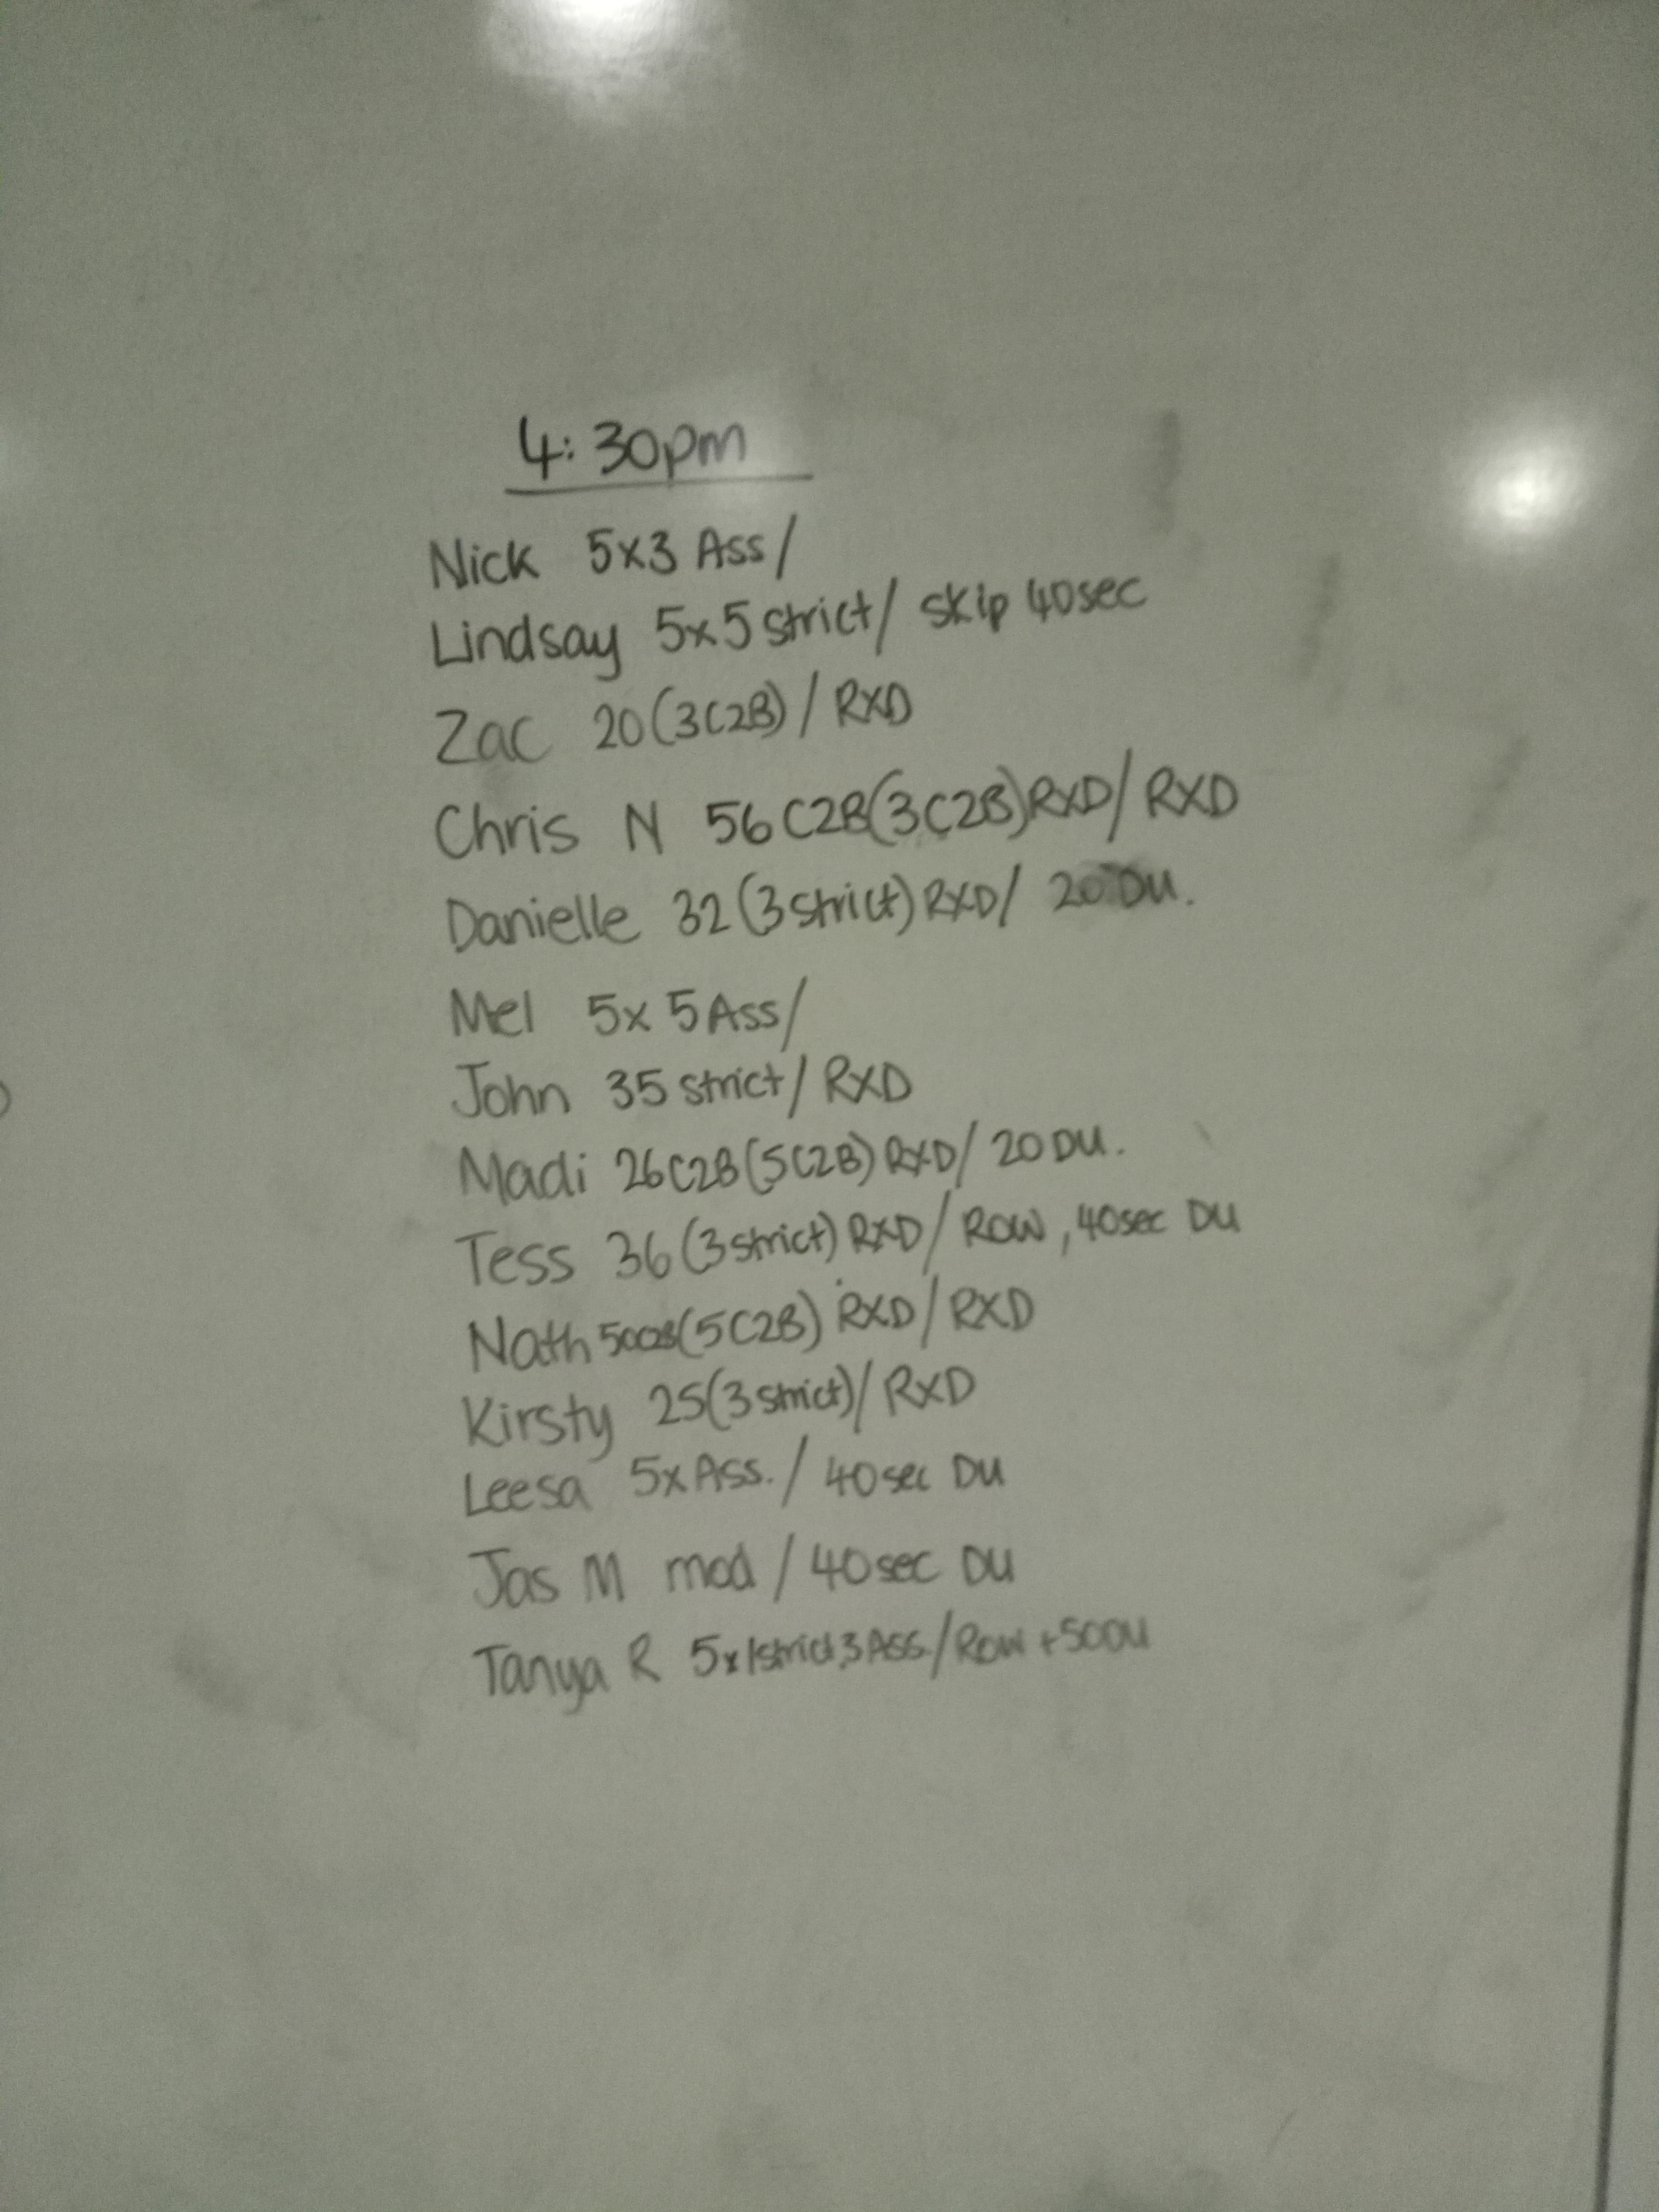 4:30pm
Nick 5x3 Ass/
Lindsay 5x5 strict/ skip 40sec
Zac 20(3C2B)/ RXD
Chris N 56 C2B(3C2B)RXD/ RXD
Danielle 32(3strict)RXD/ 20 DU.
Mel 5x 5 Ass/
John 35 strict/ RXD
Madi 26C2B(5C2B)RXD/ 20 DU.
Tess 36(3strict)RXD/ ROW, 40sec DU
Nath (5C2B) RXD/ RXD
Kirsty 25(3strict)/ RXD
Leesa 5x Ass./ 40sec DU
Jas M mod / 40sec DU
Tanya R 5x1strict,3 Ass./Row +50DU